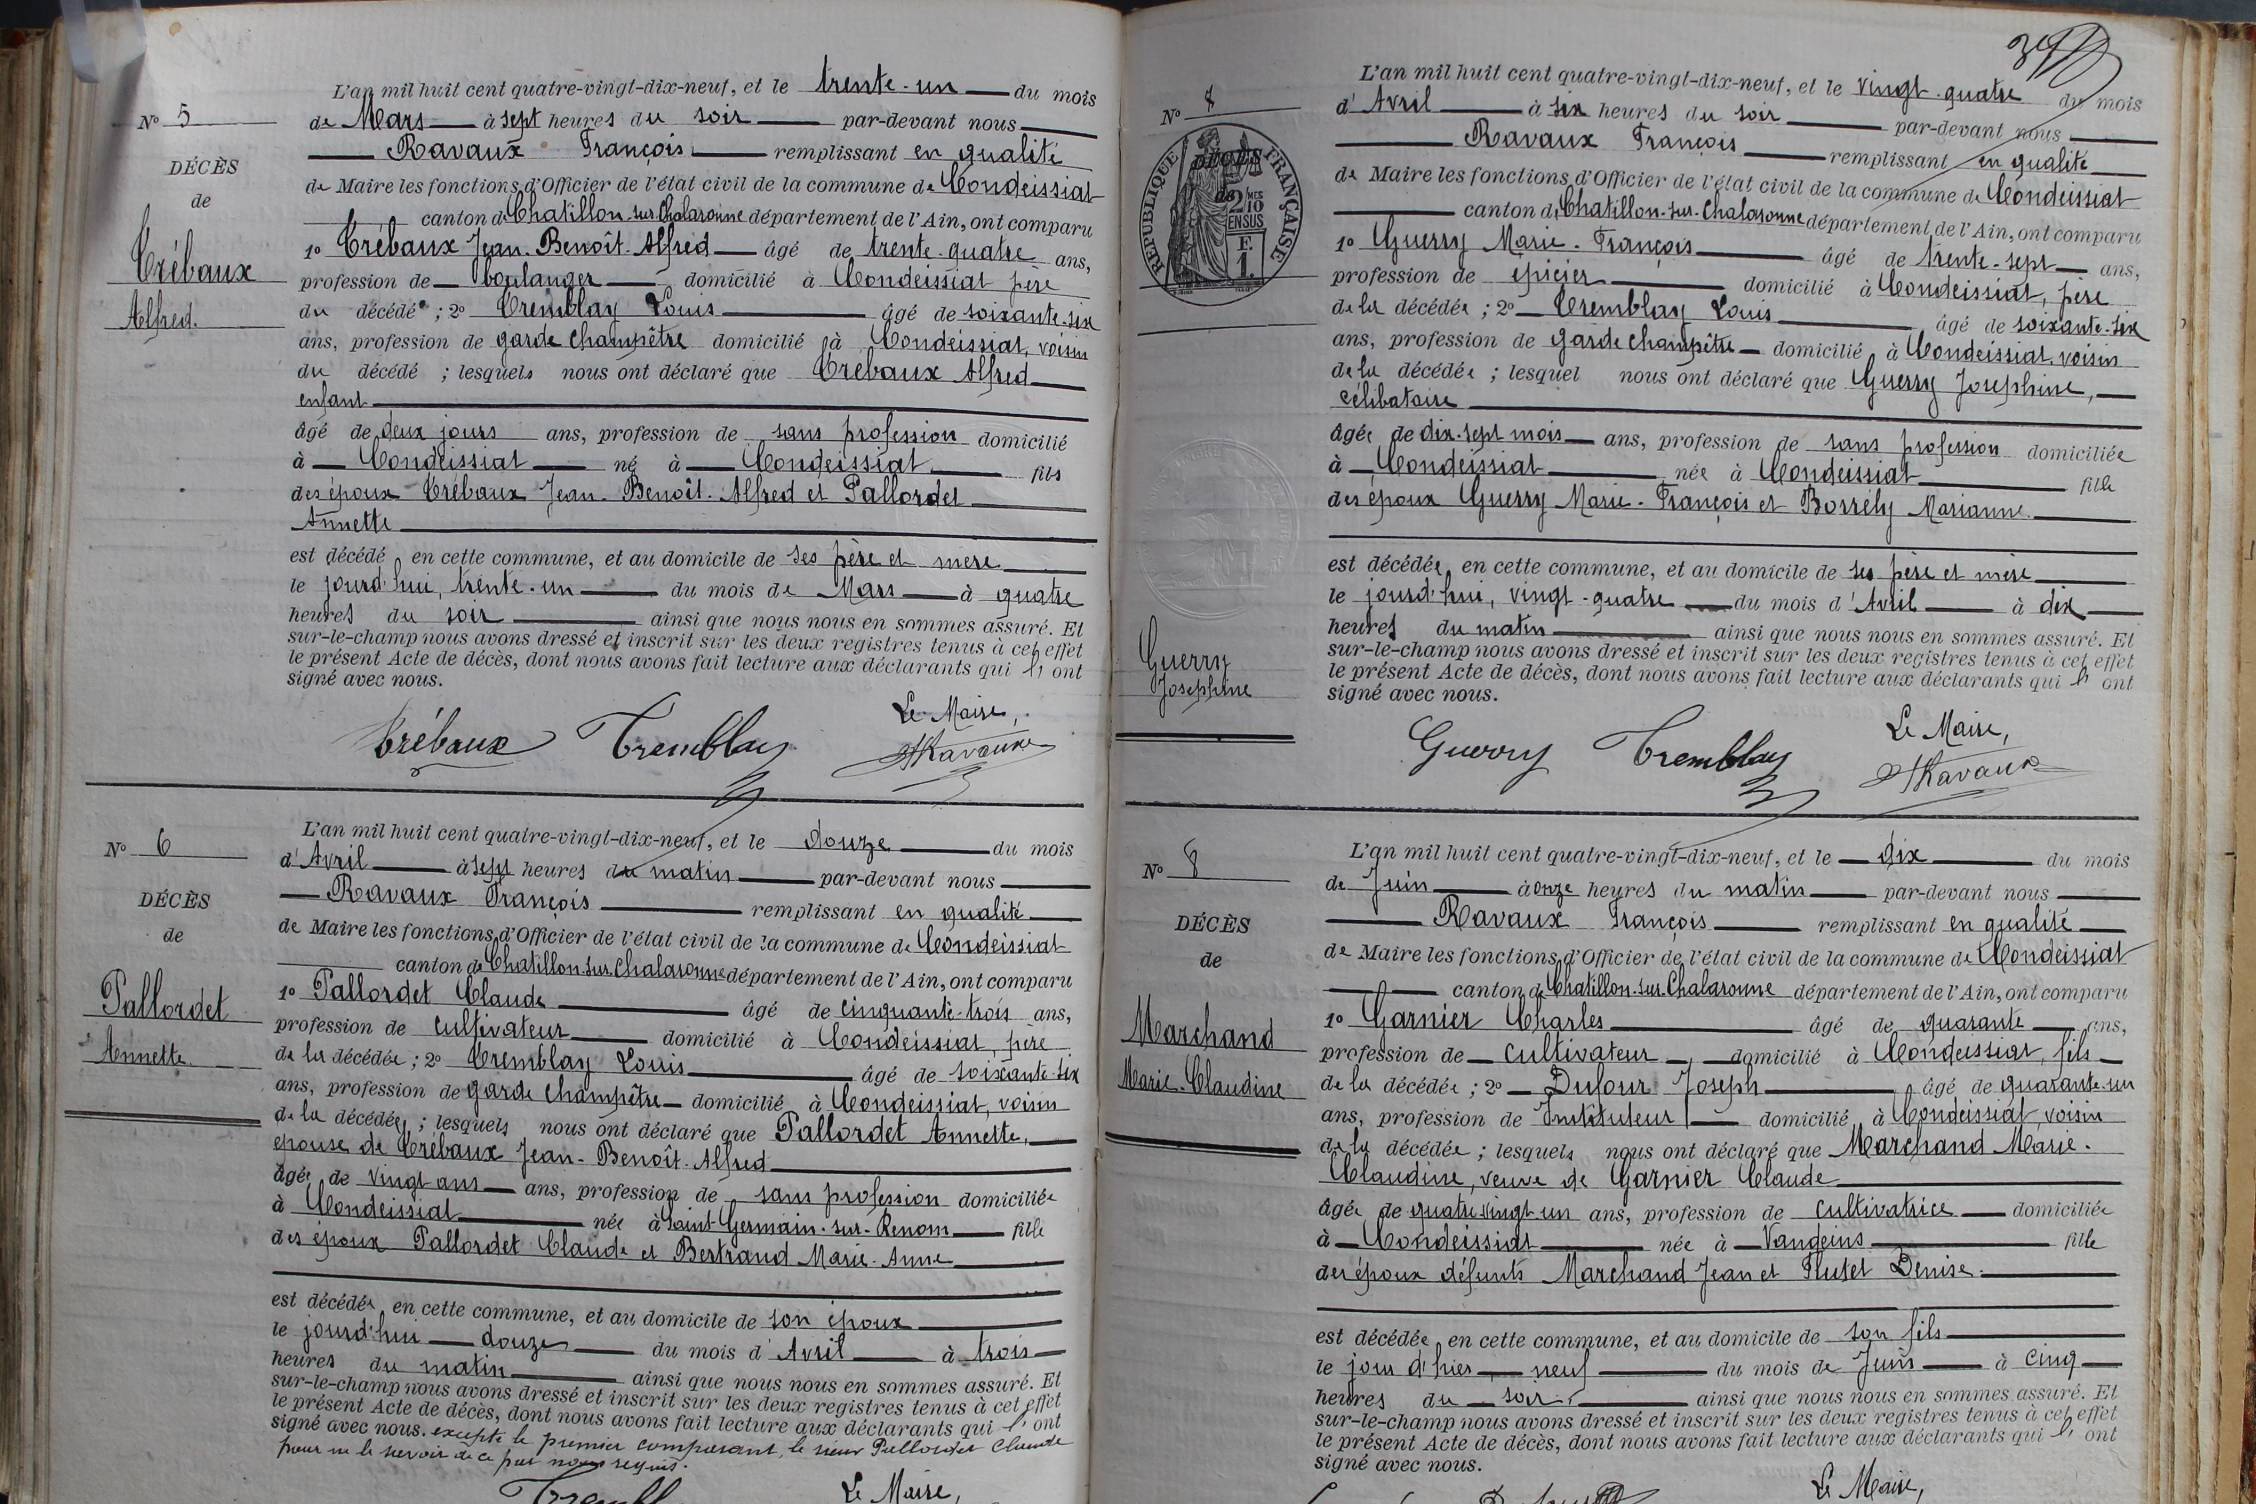 L'an mil huit cent quatre-vingt-dix-neuf, et le trente-un du mois
No 5
de Mars à sept heures du soir par-devant nous
Ravaux François remplissant en qualité
DÉCÈS
de Maire les fonctions d'Officier de l'état civil de la commune de Condeissiat
de
canton de Chatillon-sur-Chalaronne département de l'Ain, ont comparu
Crébaux
1o Crébaux Jean-Benoît-Alfred âgé de trente-quatre ans,
profession de boulanger domicilié à Condeissiat père
Alfred.
du décédé ; 2o Tremblay Louis âgé de soixante-six
ans, profession de garde champêtre domicilié à Condeissiat, voisin
du décédé ; lesquels nous ont déclaré que Crébaux Alfred
enfant
âgé de deux jours ans, profession de sans profession domicilié
à Condeissiat né à Condeissiat fils
des époux Crébaux Jean-Benoît-Alfred et Pallordet
Annette
est décédé en cette commune, et au domicile de ses père et mère
le jourd'hui, trente-un du mois de Mars à quatre
heures du soir ainsi que nous nous en sommes assuré. Et
sur-le-champ nous avons dressé et inscrit sur les deux registres tenus à cet effet
le présent Acte de décès, dont nous avons fait lecture aux déclarants qui l'ont
signé avec nous.
Le Maire,
Crébaux Tremblay Ravaux
L'an mil huit cent quatre-vingt-dix-neuf, et le douze du mois
No 6
d'Avril à sept heures du matin par-devant nous
Ravaux François remplissant en qualité
DÉCÈS
de Maire les fonctions d'Officier de l'état civil de la commune de Condeissiat
de
canton de Chatillon-sur-Chalaronne département de l'Ain, ont comparu
Pallordet
1o Pallordet Claude âgé de cinquante-trois ans,
profession de cultivateur domicilié à Condeissiat, père
Annette
de la décédée ; 2o Tremblay Louis âgé de soixante-six
ans, profession de garde champêtre domicilié à Condeissiat, voisin
de la décédée ; lesquels nous ont déclaré que Pallordet Annette,
épouse de Crébaux Jean-Benoît-Alfred
âgée de vingt ans ans, profession de sans profession domiciliée
à Condeissiat née à Saint-Germain-sur-Renom fille
des époux Pallordet Claude et Bertrand Marie-Anne
est décédée en cette commune, et au domicile de son époux
le jourd'hui douze du mois d'Avril à trois
heures du matin ainsi que nous nous en sommes assuré. Et
sur-le-champ nous avons dressé et inscrit sur les deux registres tenus à cet effet
le présent Acte de décès, dont nous avons fait lecture aux déclarants qui l'ont
signé avec nous. excepté le premier comparant, le sieur Pallordet Claude
pour ne le savoir de ce par nous requis.
Le Maire,
L'an mil huit cent quatre-vingt-dix-neuf, et le vingt-quatre du mois
No
d'Avril à six heures du soir par-devant nous
Ravaux François remplissant en qualité
RÉPUBLIQUE FRANÇAISE
DÉCÈS
de
2 MES
10
EN SUS
F.
1.
de Maire les fonctions d'Officier de l'état civil de la commune de Condeissiat
canton de Chatillon-sur-Chalaronne département de l'Ain, ont comparu
1o Guerry Marie-François âgé de trente-sept ans,
profession de épicier domicilié à Condeissiat, père
de la décédée ; 2o Tremblay Louis âgé de soixante-six
ans, profession de garde champêtre domicilié à Condeissiat, voisin
de la décédée ; lesquel nous ont déclaré que Guerry Josephine,
célibataire
âgée de dix-sept mois ans, profession de sans profession domiciliée
à Condeissiat née à Condeissiat fille
des époux Guerry Marie-François et Borrély Marianne.
est décédée en cette commune, et au domicile de ses père et mère
le jourd'hui, vingt-quatre du mois d'Avril à dix
heures du matin ainsi que nous nous en sommes assuré. Et
sur-le-champ nous avons dressé et inscrit sur les deux registres tenus à cet effet
Guerry
Josephine
le présent Acte de décès, dont nous avons fait lecture aux déclarants qui l'ont
signé avec nous.
Le Maire,
Guerry Tremblay Ravaux
L'an mil huit cent quatre-vingt-dix-neuf, et le dix du mois
No 8
de Juin à onze heures du matin par-devant nous
Ravaux François remplissant en qualité
DÉCÈS
de Maire les fonctions d'Officier de l'état civil de la commune de Condeissiat
de
canton de Chatillon-sur-Chalaronne département de l'Ain, ont comparu
Marchand
1o Garnier Charles âgé de quarante ans,
profession de cultivateur domicilié à Condeissiat, fils
Marie-Claudine
de la décédée ; 2o Dufour Joseph âgé de quarante-un
ans, profession de Instituteur domicilié à Condeissiat, voisin
de la décédée ; lesquels nous ont déclaré que Marchand Marie-
Claudine, veuve de Garnier Claude
âgée de quatre vingt-un ans, profession de cultivatrice domiciliée
à Condeissiat née à Vandeins fille
des époux défunts Marchand Jean et Flutet Denise.
est décédée en cette commune, et au domicile de son fils
le jour d'hier neuf du mois de Juin à cinq
heures du soir, ainsi que nous nous en sommes assuré. Et
sur-le-champ nous avons dressé et inscrit sur les deux registres tenus à cet effet
le présent Acte de décès, dont nous avons fait lecture aux déclarants qui l'ont
signé avec nous.
Le Maire,